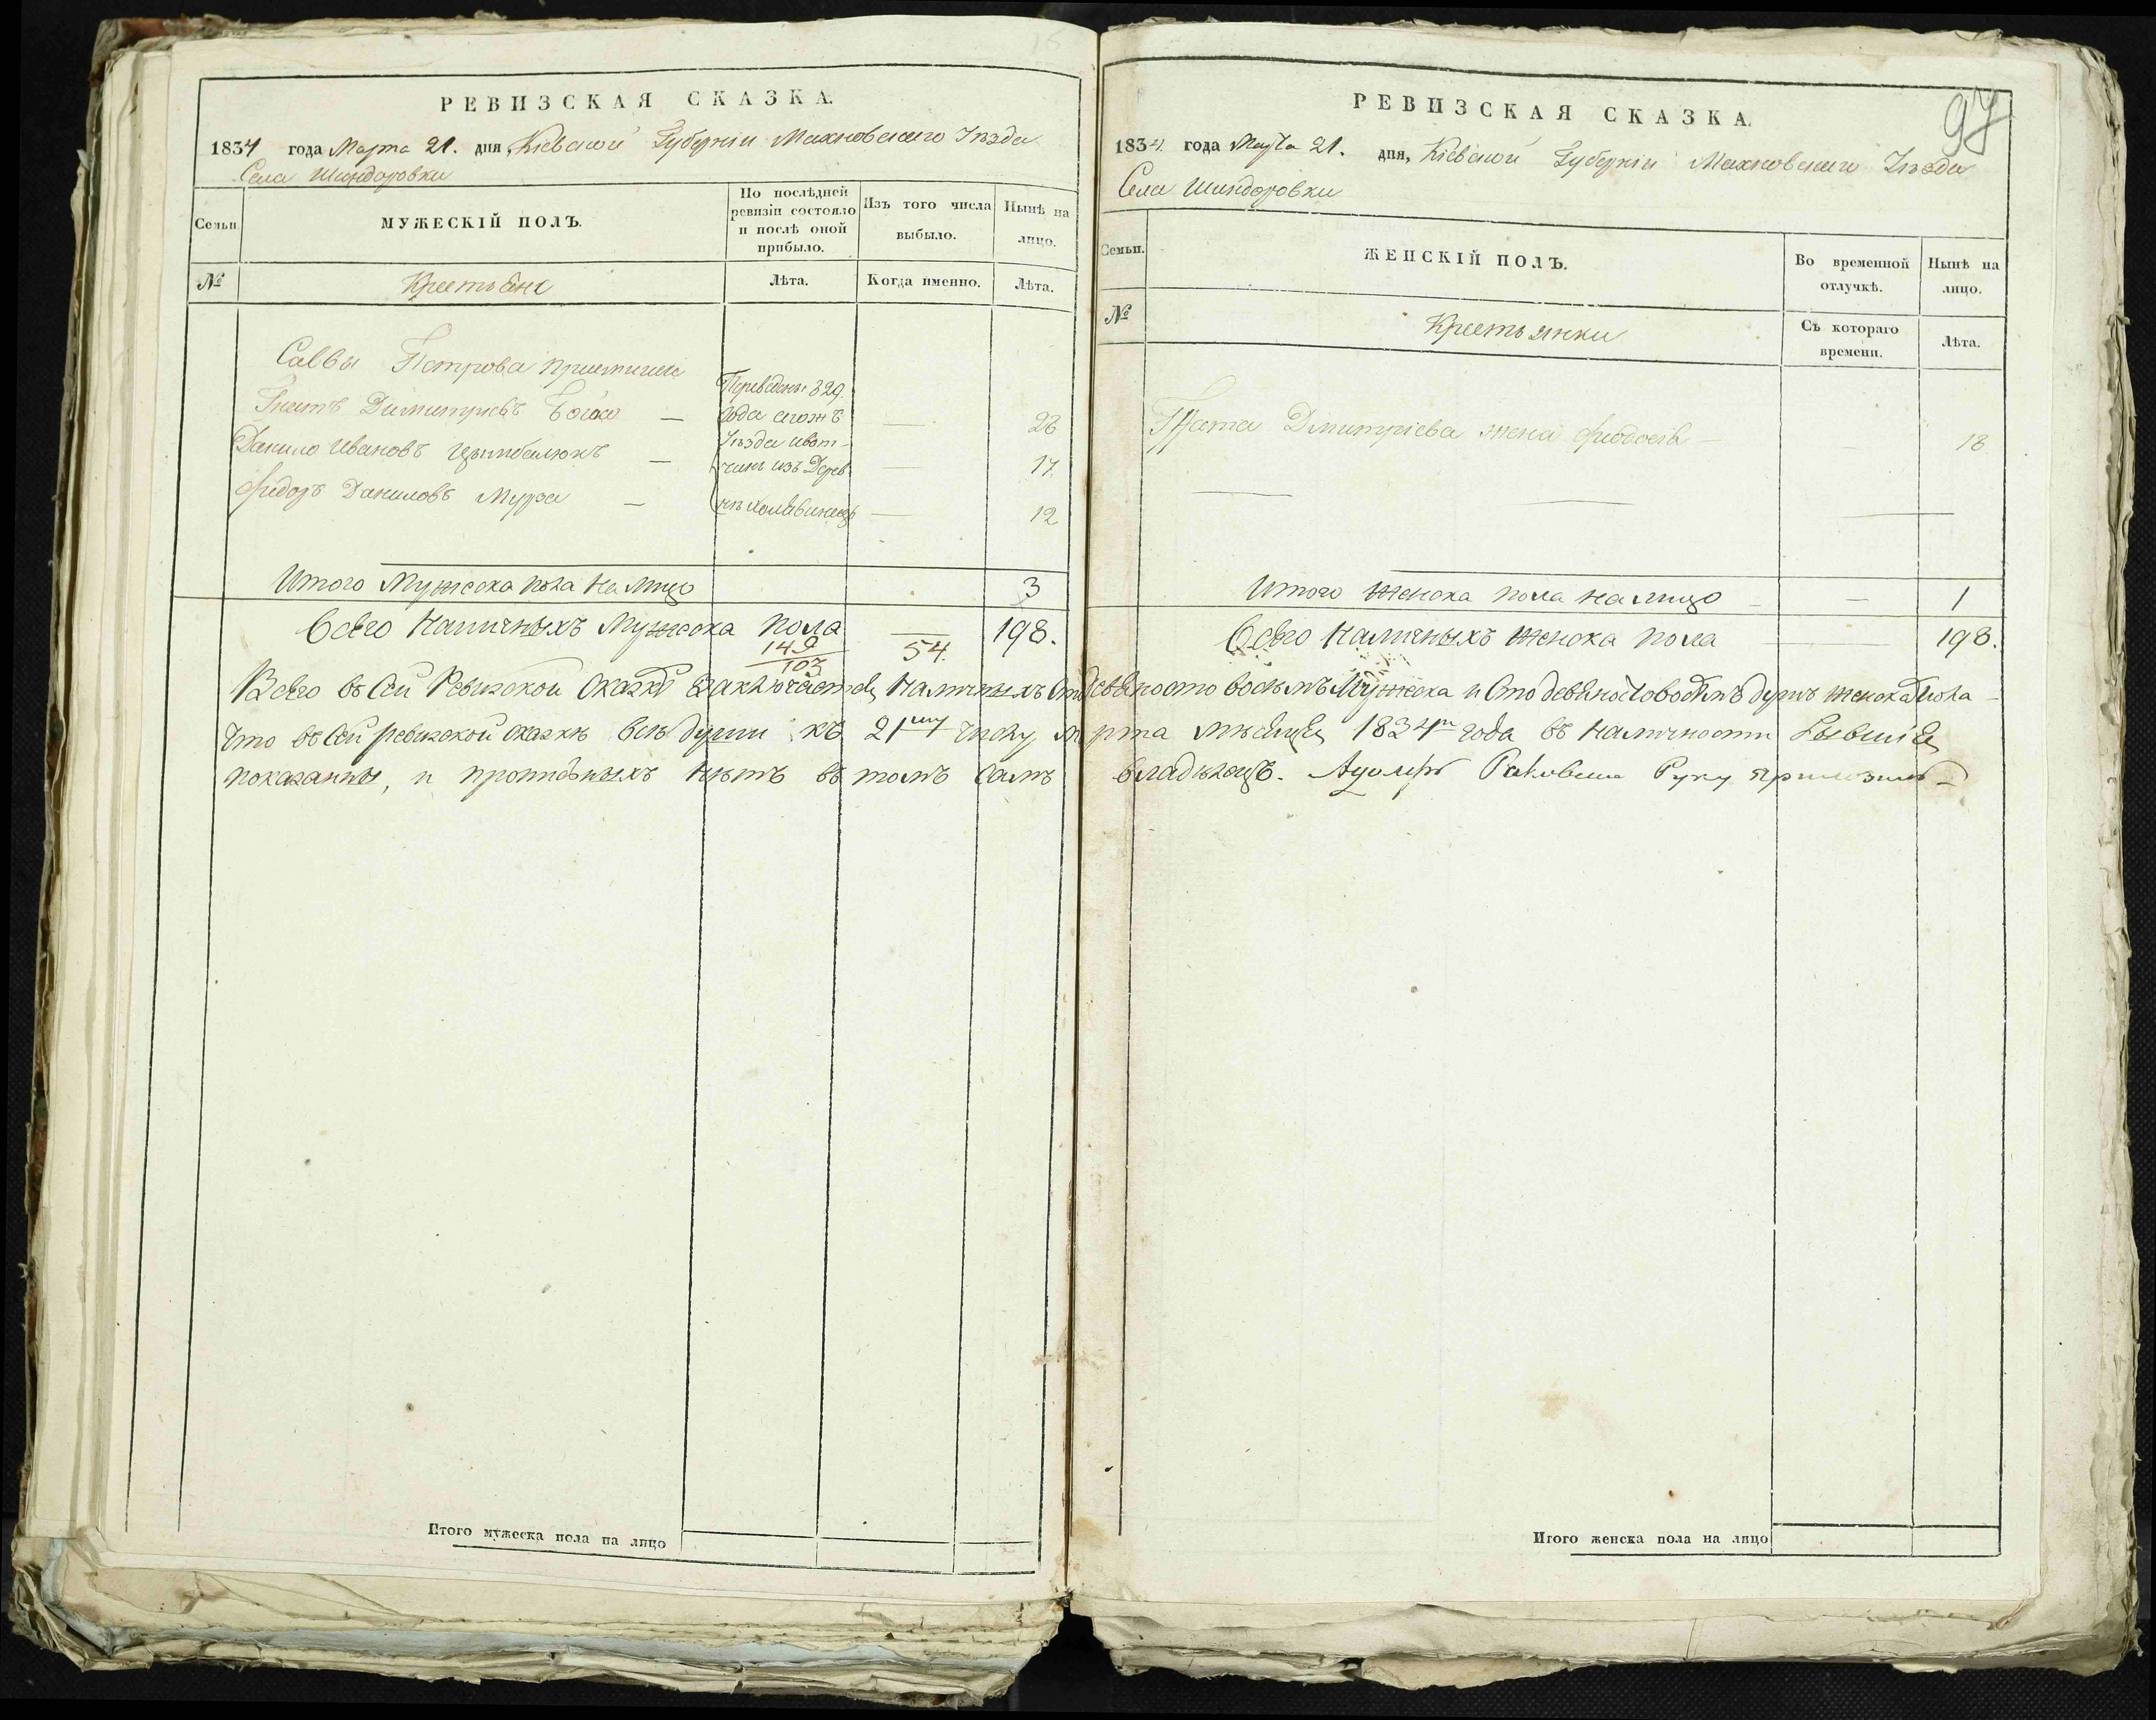 РЕВИЗСКАЯ СКАЗКА.
1834 года Марта 21. дня, Кіевской Губерніи Махновскаго Уѣзда
Села Шиндоровки
Семьи.
МУЖЕСКІЙ ПОЛЪ.
По послѣдней ревизіи состояло и послѣ оной прибыло.
Изъ того числа выбыло.
Нынѣ на лицо.
№
Крестьяне
Лѣта.
Когда именно.
Лѣта.
Саввы Петрова приемыши
Игнатъ Димитріевъ — 26
Данило Ивановъ Цымбалюкъ — 17.
Федоръ Даниловъ Мурза — 12
Переведены 829.
года
Уѣзда
изъ Дерев
Итого Мужеска пола на лицо 3
Всего Наличныхъ Мужеска пола — 54. 198.
149
103
РЕВИЗСКАЯ СКАЗКА.
97
1834. года Марта 21. дня, Кіевской Губерніи Махновскаго Уѣзда
Села Шиндоровки
Семьи.
ЖЕНСКІЙ ПОЛЪ.
Во временной отлучкѣ.
Нынѣ на лицо.
№
Крестьянки
Съ котораго времени.
Лѣта.
Димитріева жена Феодосія — — 18
Итого Женска пола на лицо — — 1
Всего Наличныхъ Женска пола — 198.
Всего въ Сей Ревизской Сказкѣ Заключается Наличныхъ Сто девяносто восемь Мужеска и Сто девяносто восемь душъ женска пола —
Что въ Сей ревизской сказкѣ всѣ души къ 21му числу марта мѣсяца 1834го года въ наличности бывшія
показанны, и прописныхъ нѣтъ въ томъ самъ владѣлецъ. Адольфъ Руку приложилъ —
Итого мужеска пола на лицо
Итого женска пола на лицо